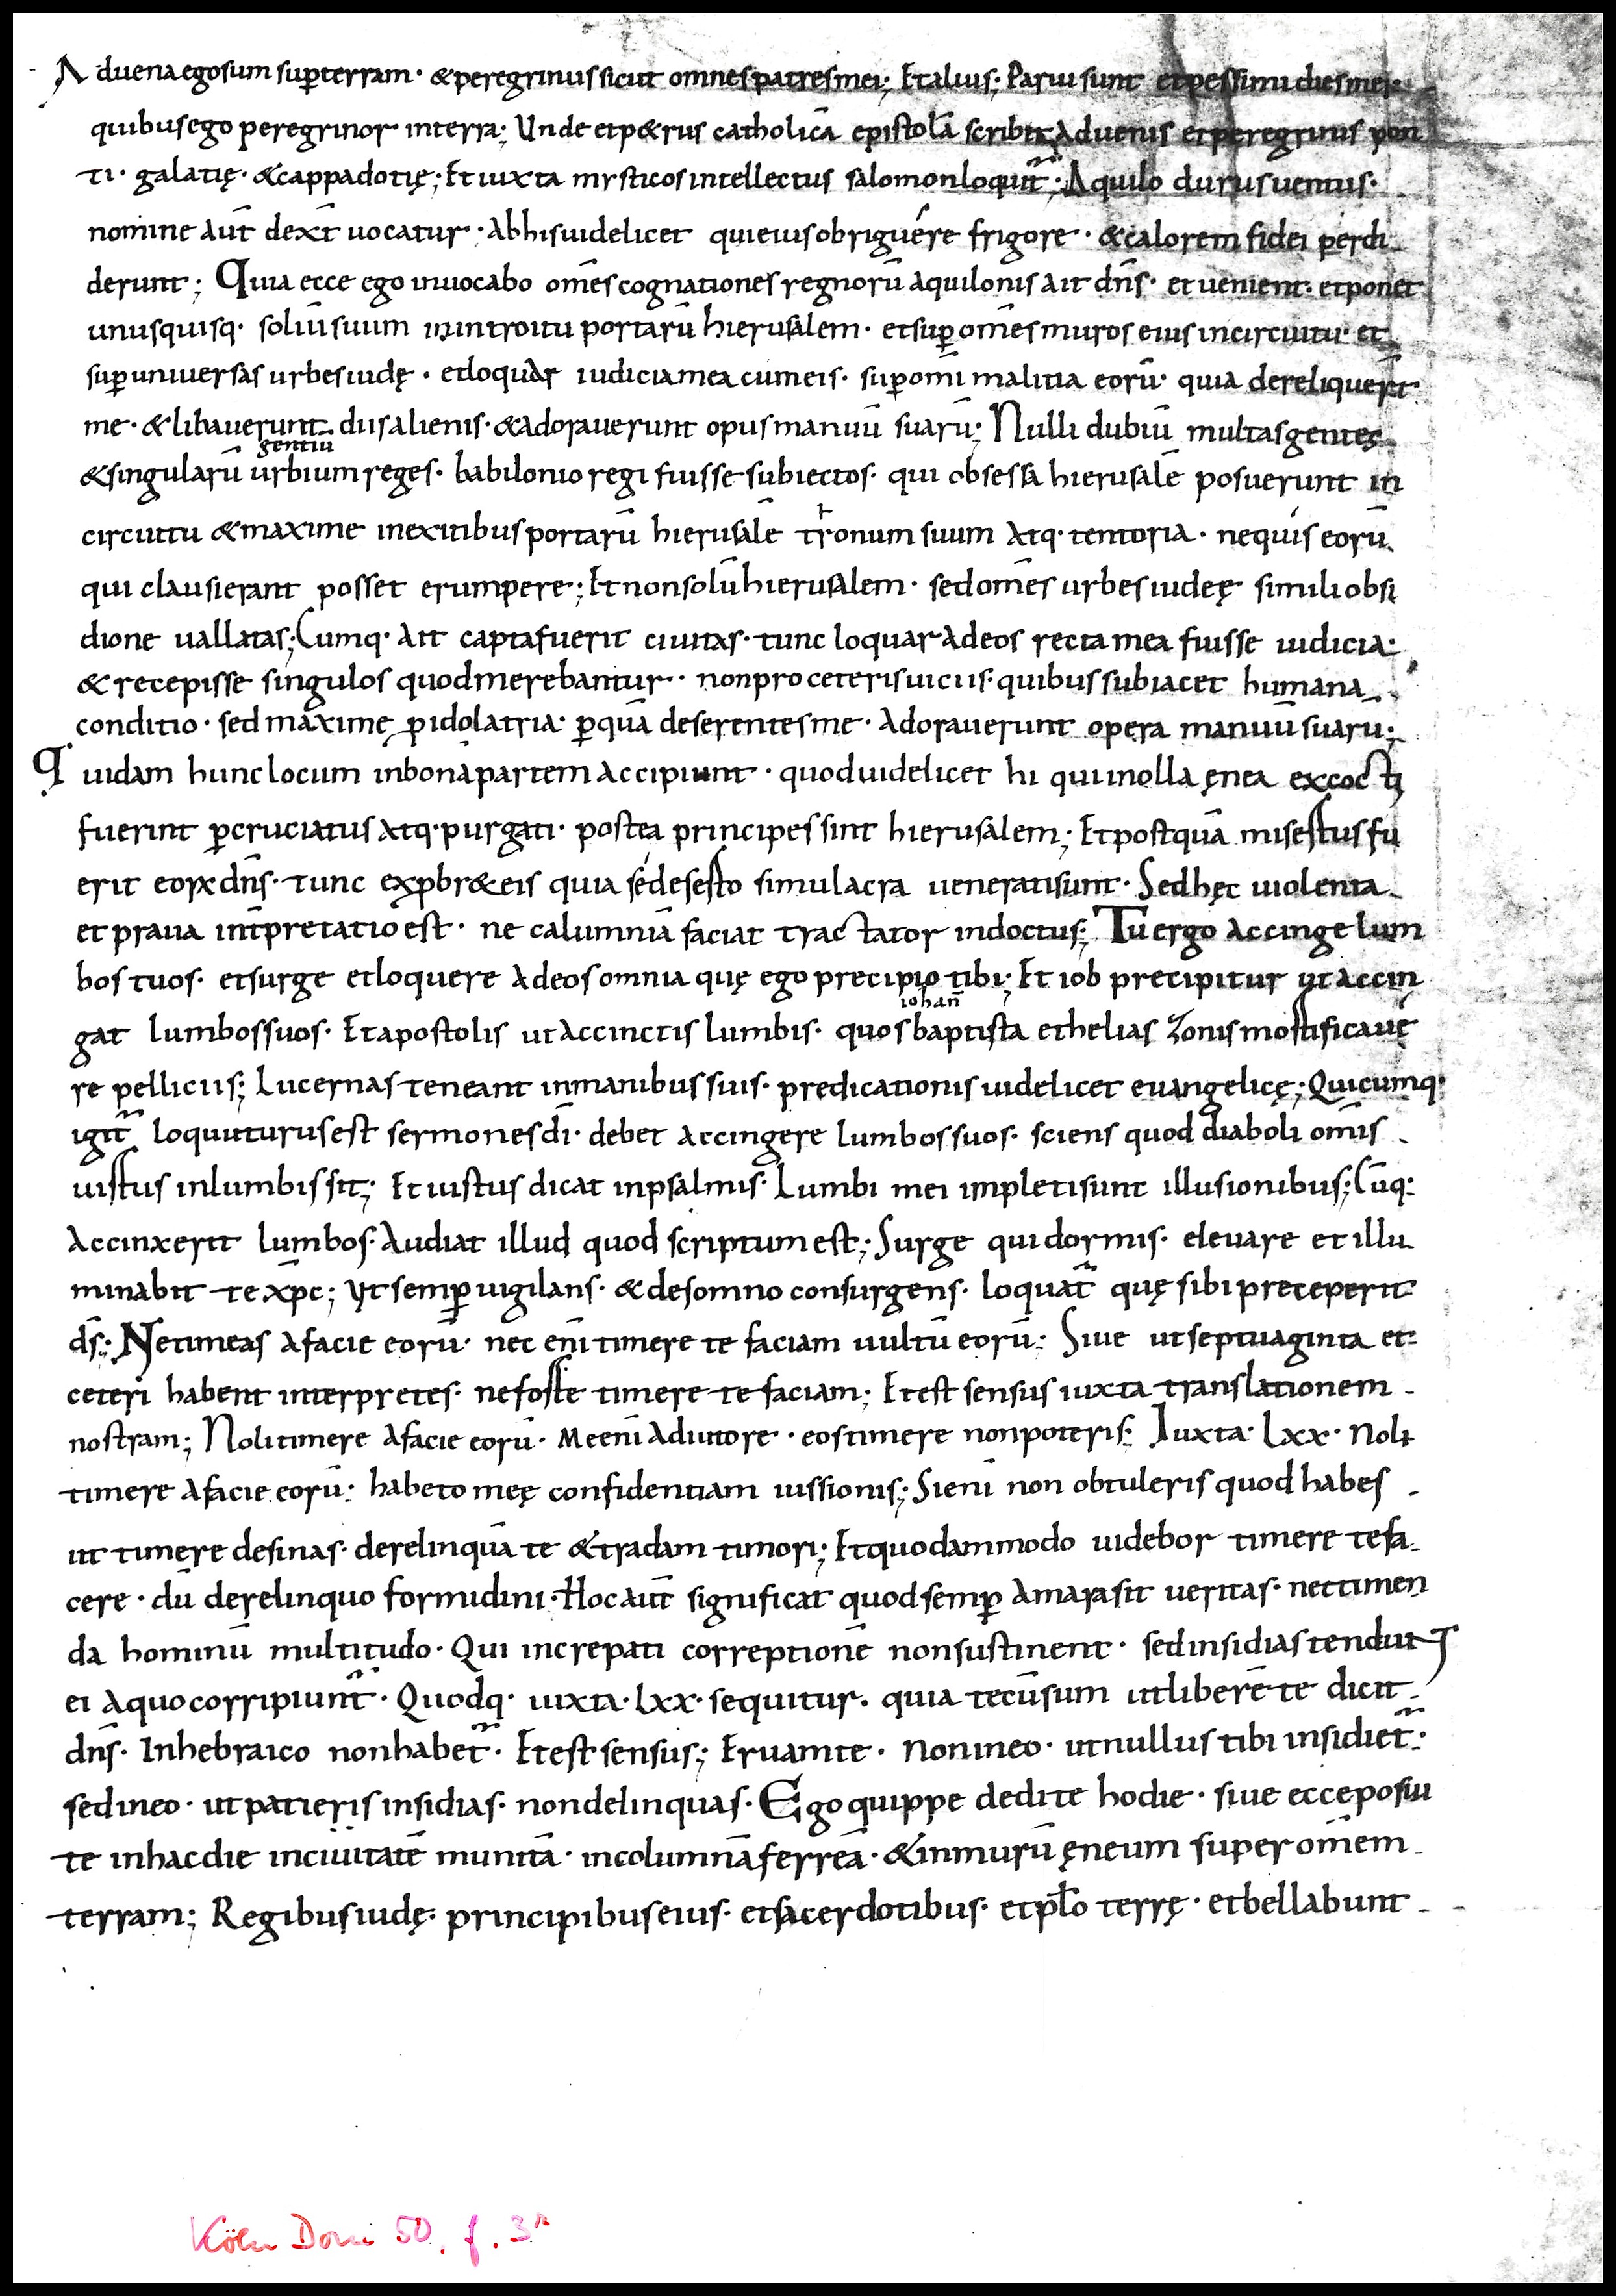 Aduena ego sum sup̄ terram· & peregrinus sicut omnes patres mei; Et alius; Parui sunt et pessimi dies mei·
quibus ego peregrinor in terra; Unde et p&rus catholicā epistolā scribit aduenis et peregrinus pon
ti· galatię· & cappadotię; Et iuxta mysticos intellectus salomon loquit̄; Aquilo durus uentus·
nomine aut̄ dext̄ uocatur· Ab his uidelicet qui eius obriguére frigore· & calorem fidei p̄erdi
derunt; Quia ecce ego inuocabo om̄es cognationes regnorū aquilonis ait dn̄s· et uenient· et ponet
unusquisq· soliū suum in introitu portarū hierusalem· et sup̄ om̄es muros eius in circuitu· et
sup̄ uniuersas urbes iudę· et loquar iudicia mea cum eis· sup̄ om̄i malitia eorū· quia dereliquer̄t
me· & libauerunt diis alienis· & adorauerunt opus manuū suarū; Nulli dubiū multas gentes
gentiū
& singularū urbium reges· babilonio regi fuisse subiectos· qui obsessa hierusalē posuerunt in
circuitu & maxime in exitibus portarū hierusalē tronum suum atq· tentoria· ne quis eorū
qui clausi erant posset erumpere; Et non solū hierusalem· sed om̄es urbes iudeę simili obsi
dione uallatas; Cumq· ait capta fuerit ciuitas· tunc loquar ad eos recta mea fuisse iudicia;
& recepisse singulos quod merebantur· non pro ceteris uiciis· quibus subiacet humana
conditio· sed maxime p̱ idolatria· p̄ quā deserentes me· adorauerunt opera manuū suarū;
Quidam hunc locum in bonā partem accipiunt· quod uidelicet hi qui in olla ęnea excocti
fuerint p̄ cruciatus atq· purgati· postea principes sint hierusalem; Et postquā misertus fu
erit eorx dn̄s· tunc exp̄br& eis quia sédeserto simulacra uenerati sunt· Sed hęc uiolenta
et praua int̄pretatio est· ne calumniā faciat tractator indoctus; Tu ergo accinge lum
bos tuos· et surge et loquere ad eos omnia quę ego precipio tibi; Et iob precipitur ut accin
iohan̄
gat lumbos suos· Et apostolis ut accinctis lumbis· quos baptista et helias zonis mortificaue
re pelliciis; Lucernas teneant in manibus suis· predicationis uidelicet euangelicę; Quicumq·
igit̄ loquuturus est sermones dī· debet accingere lumbos suos· sciens quod diaboli om̄is
uirtus in lumbis sit; Et iustus dicat in psalmis· Lumbi mei impleti sunt illusionibus; Cūq·
accinxerit lumbos· Audiat illud quod scriptum est; Surge qui dormis· eleuare et illu
minabit te xp̄c; ut semp̄ uigilans· & de somno consurgens· loquat̄ quę sibi preceperit
ds̄; Ne timeas a facie eorū· nec en̄i timere te faciam uultū eorū; Siue ut septuaginta et
ceteri habent interpretes· ne forte timere te faciam; Et est sensus iuxta translationem
nostram; Noli timere a facie eorū· Me en̄i adiutore· eos timere non poteris; Iuxta· lxx· Noli
timere a facie eorū; habeto meę confidentiam iussionis; Si en̄i non obtuleris quod habes
ut timere desinas· derelinquā te & tradam timori; Et quodammodo uidebor timere te fa
cere· dū derelinquo formidini· Hoc aut̄ significat quod semp̄ amara sit ueritas· nec timen
da hominū multitudo· Qui increpati correptionē non sustinent· sed insidias tendūt
ei a quo corripiunt̄· Quodq· iuxta· lxx· sequitur· quia tecūsum ut liberē te dicit
dn̄s· In hebraico non habet̄· Et est sensus; Eruam te· Non in eo· ut nullus tibi insidiet̄;
sed in eo· ut patieris insidias· non delinquas· Ego quippe dedi te hodie· siue ecce posui
te in hac die in ciuitatē munitā· in columnā ferreā· & in murū ęneum super om̄em
terram; Regibus iudę· principibus eius· et sacerdotibus· et pl̄o terrę· et bellabunt
Köln Dom 50, f. 3r